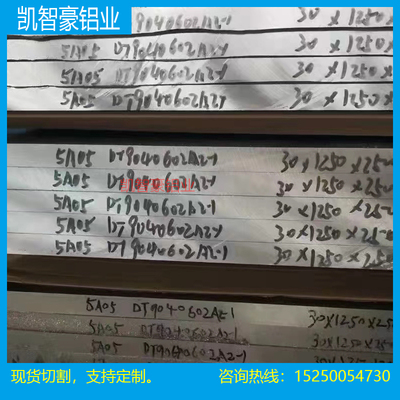 凯智豪铝业
9040602A2-1 30×1250
5A05 DT9040602A2-1 30×1250
5A05 DT9040602A2-1 30×1250
5A05 DT9040602A2-1 30×1250×250
5A05 DT9040602A2-1 30×1250×250
5A05 DT9040602A2-1 30×1250×250
5A05 DT9040602A2-1 30×1250×250
5A05 DT9040602A2-1 30×1250×250
5A05 DT9040602A2-1 30×1250×25
5A05 DT9040602A2-1 30×1250×25
5A05 DT9040602A2-1 30×1250×2
现货切割，支持定制。 咨询热线：15250054730